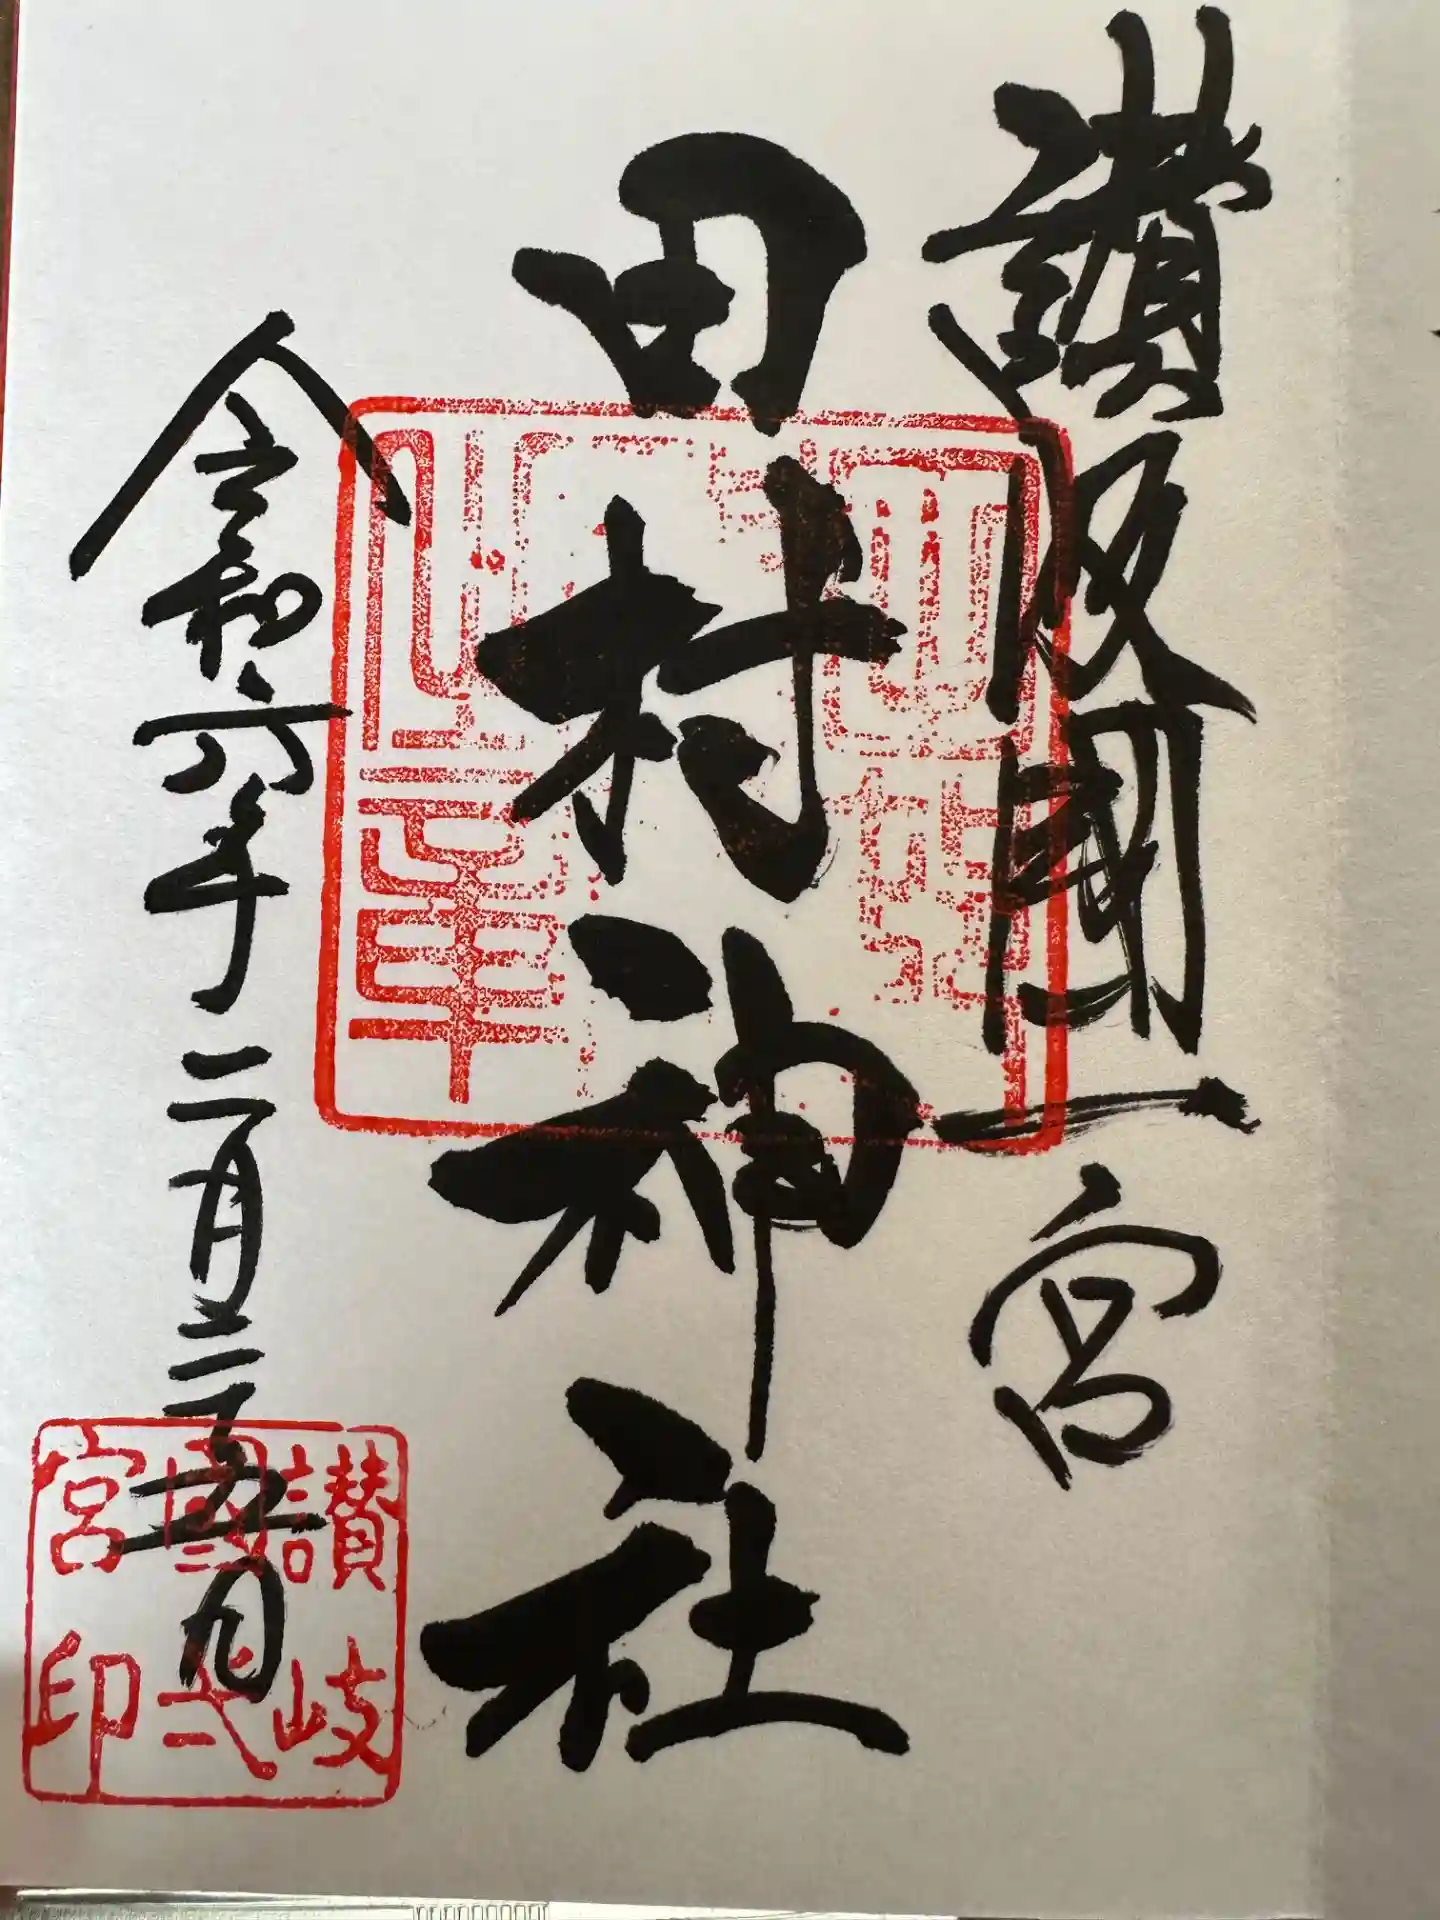 讃岐國一宮
田村神社
令和六年二月二十五日
讃岐
國弌
宮印